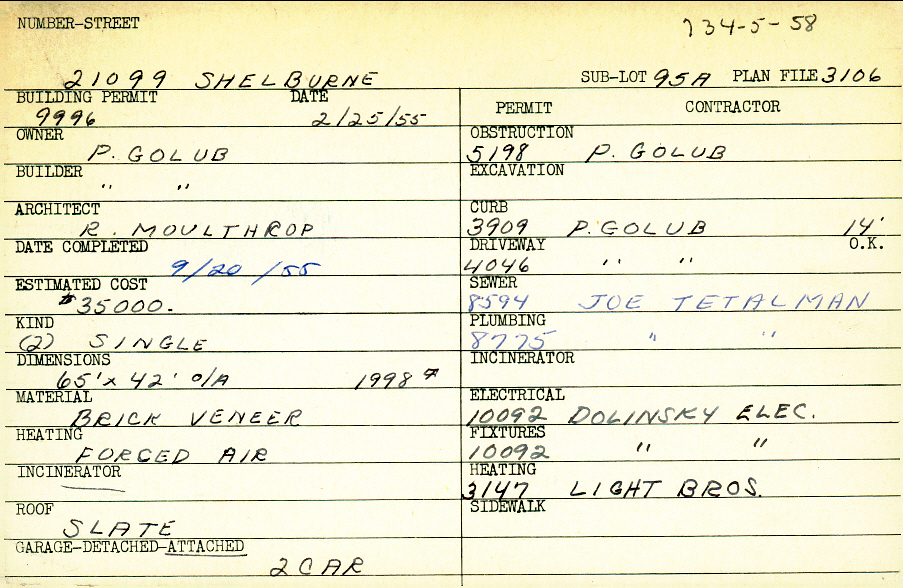 NUMBER-STREET
734-5-58
21099 SHELBURNE
SUB-LOT 95A PLAN FILE 3106
BUILDING PERMIT DATE
9996 2/25/55
OWNER
P. GOLUB
BUILDER
" "
ARCHITECT
R. MOULTHROP
DATE COMPLETED
9/20/55
ESTIMATED COST
$35000.
KIND
(2) SINGLE
DIMENSIONS
65'x 42' o/A 1998 #
MATERIAL
BRICK VENEER
HEATING
FORCED AIR
INCINERATOR
ROOF
SLATE
GARAGE-DETACHED-ATTACHED
2 CAR
PERMIT CONTRACTOR
OBSTRUCTION
5198 P. GOLUB
EXCAVATION
CURB
3909 P. GOLUB 14'
DRIVEWAY O.K.
4046 " "
SEWER
8594 JOE TETALMAN
PLUMBING
8775 " "
INCINERATOR
ELECTRICAL
10092 DOLINSKY ELEC.
FIXTURES
10092 " "
HEATING
3147 LIGHT BROS.
SIDEWALK